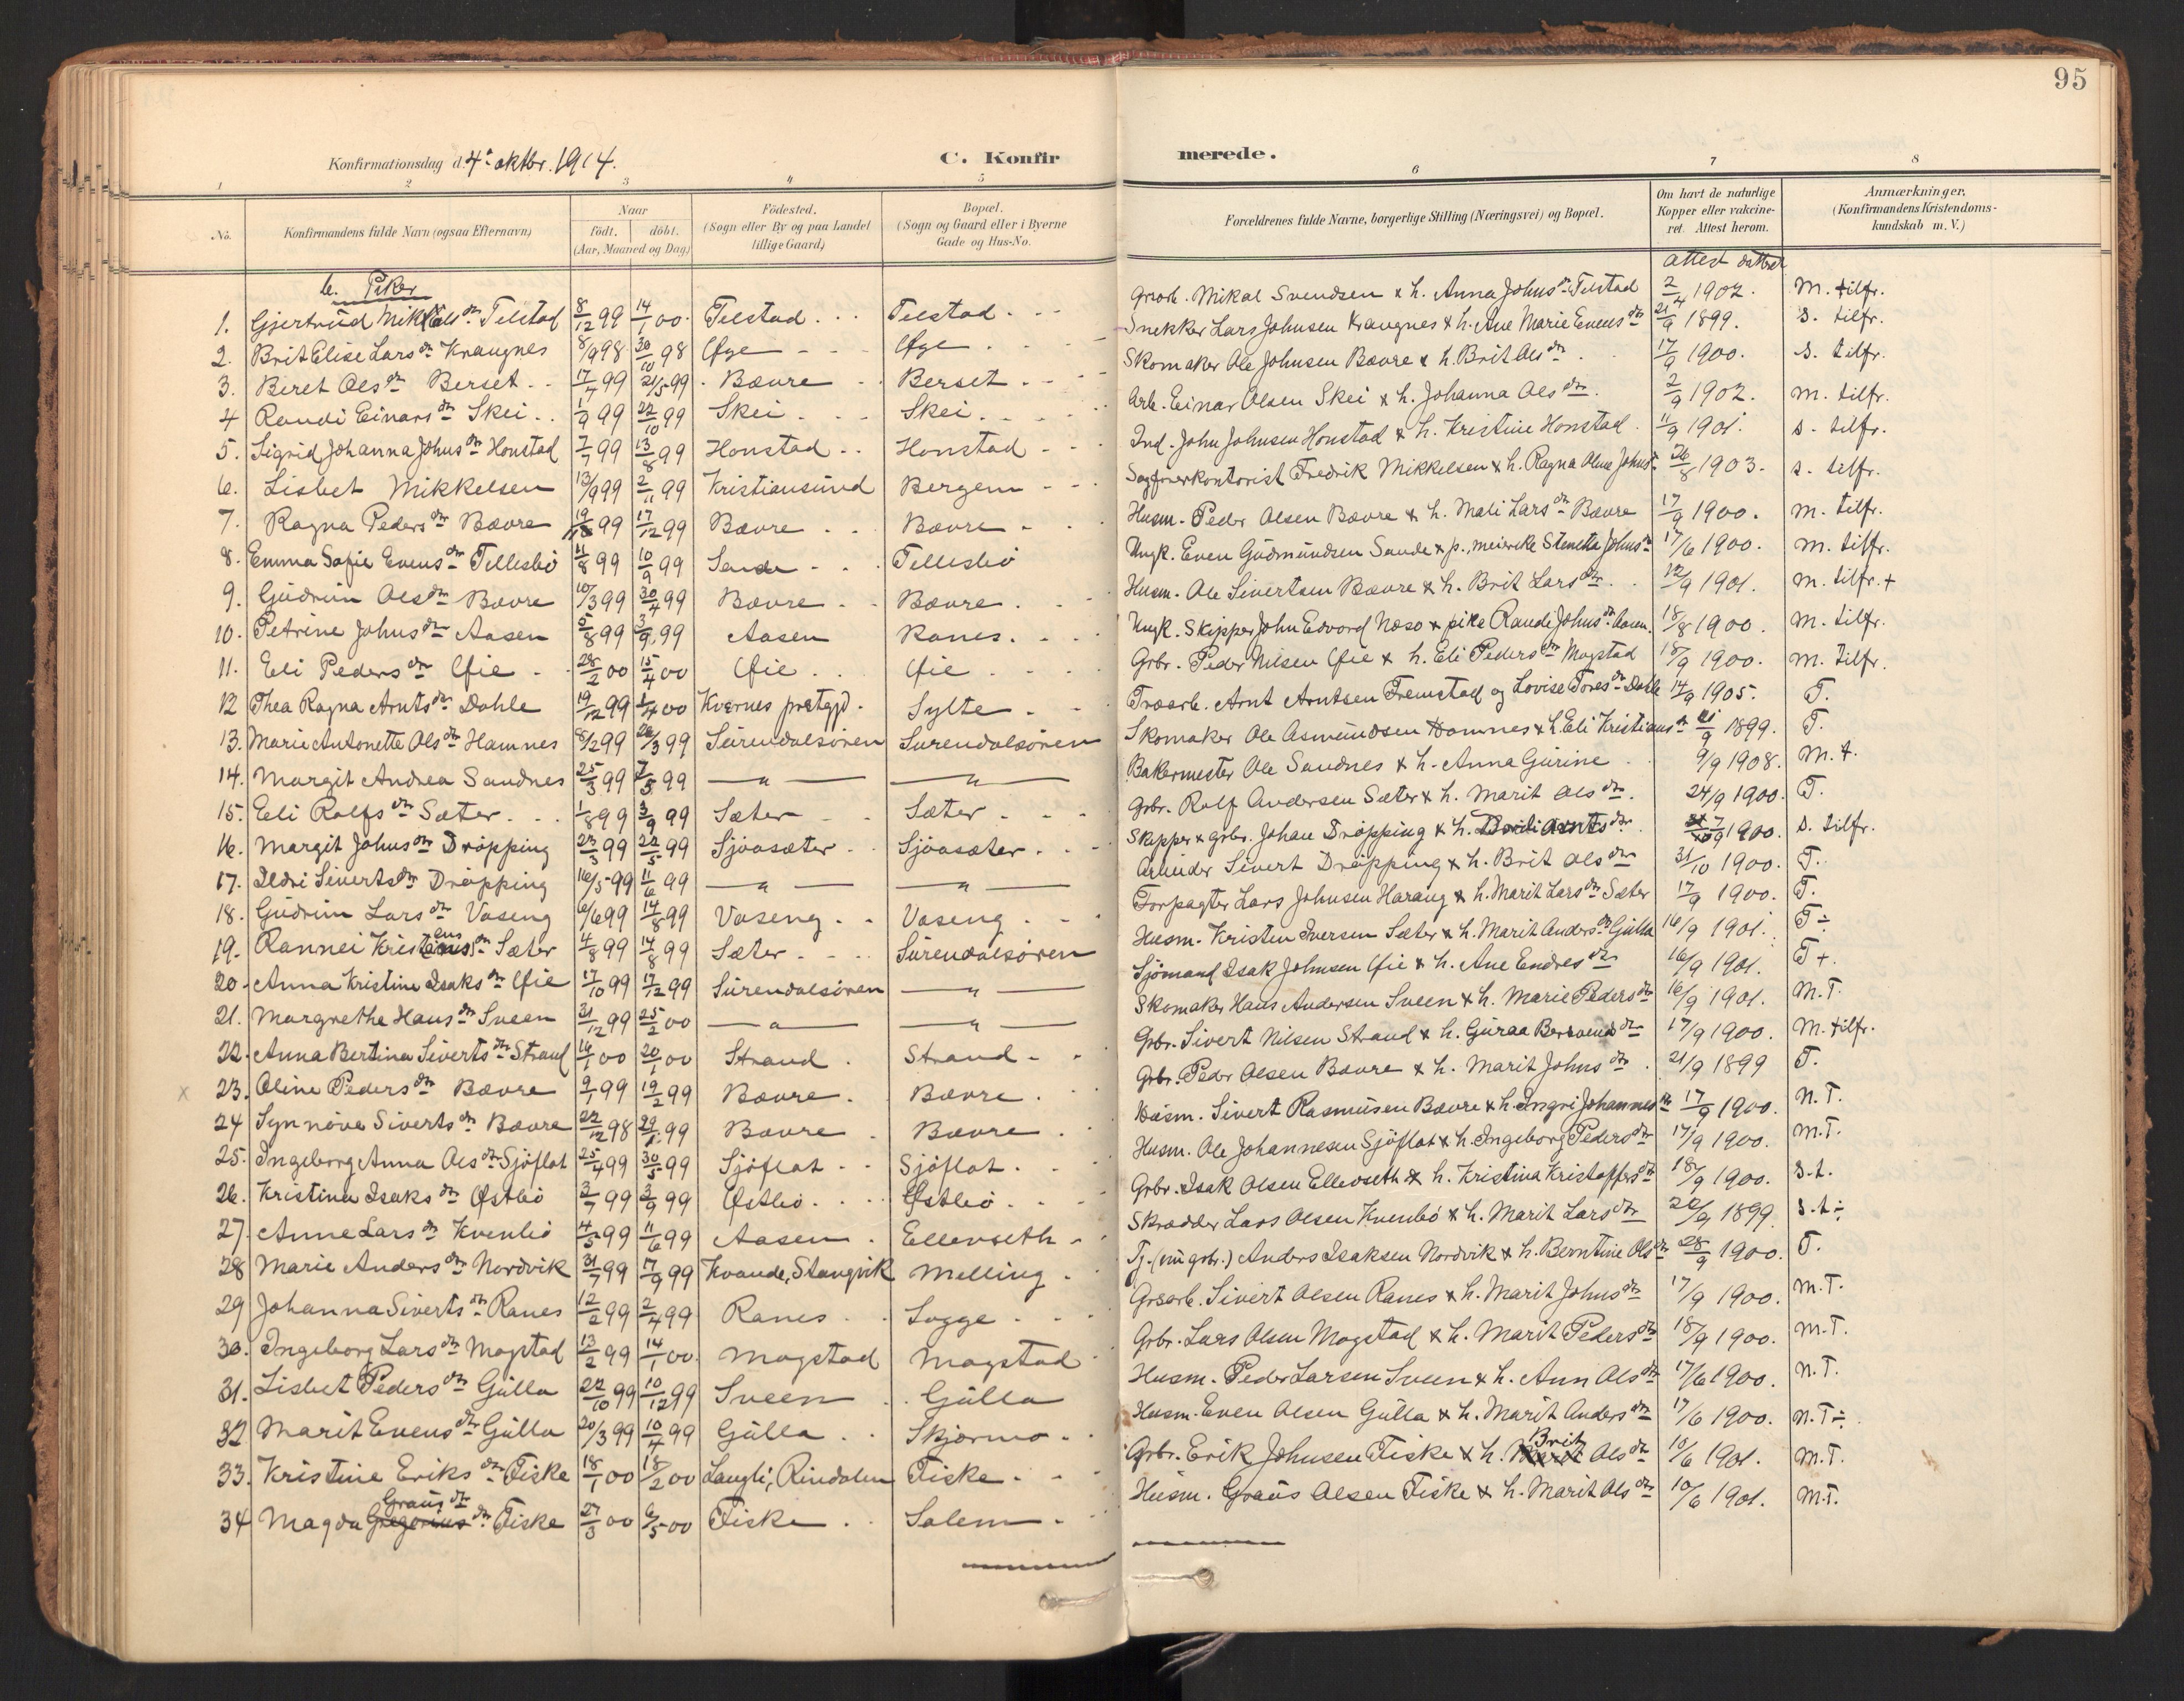 95
Konfirmationsdag d. 4de oktbr. 1914.
C. Konfirmerede.
1 2 3 4 5 6 7 8
No. Konfirmandens fulde Navn (ogsaa Efternavn) Naar født. døbt. (Aar, Maaned og Dag) Födested. (Sogn eller By og paa Landet tillige Gaard) Bopæl. (Sogn og Gaard eller i Byerne Gade og Hus-No. Forældrenes fulde Navne, borgerlige Stilling (Næringsvei) og Bopæl. Om havt de naturlige Kopper eller vakcineret. Attest herom. Anmærkninger, (Konfirmandens Kristendomskundskab m. V.)
b. Piker attest dateret
1. Gjertrud Mikals dtr Telstad 8/12 99 14/1 00 Telstad Telstad Mikal Svendsen & h. Anna Johns dtr Telstad 2/9 1902. M. tilfr.
2. Brit Elise Lars dtr Krangnes 8/9 98 30/10 98 Øye Øye Snekker Lars Johnsen Krangnes & h. Ane Marie Evens dtr 21/9 1899. s. tilfr.
3. Beret Ols dtr Berset 17/4 99 21/5 99 Bævre Berset Skomaker Ole Johnsen Bævre & h. Brit Ols dtr 17/9 1900. s. tilfr.
4 Randi Einars dtr Skei 1/9 99 22/10 99 Skei Skei Arb. Einar Olsen Skei & h. Johanna Ols dtr 2/9 1902. m. tilfr.
5. Sigrid Johanna Johns dtr Honstad 7/7 99 13/8 99 Honstad Honstad Ind. John Johnsen Honstad & h. Kristine Honstad 11/9 1901. s. tilfr.
6. Lisbet Mikkelsen 13/9 99 2/11 99 Kristiansund Bergem Sagförerkontorist Fredrik Mikkelsen & h. Ragna Johns 26/8 1903. s. tilfr.
7. Ragna Peders dtr Bævre 19/ 99 17/12 99 Bævre Bævre Husm. Peder Olsen Bævre & h. Mali Lars dtr Bævre 17/9 1900. m. tilfr.
8. Emma Sofie Evens dtr Tellesbö 11/8 99 10/9 99 Sande Tellesbö Ungk. Even Gudmundsen Sande & p., Johns dtr 17/6 1900. m. tilfr.
9. Gudrun Ols dtr Bævre 10/3 99 30/4 99 Bævre Bævre Husm. Ole Sivertsen Bævre & h. Brit Lars dtr 12/9 1901. m. tilfr. +
10. Petrine Johns dtr Aasen 5/8 99 3/9 99 Aasen Ranes Ungk. Skipper John Edvard Næsø & pike Randi Johns dtr Aasen 18/8 1900. m. tilfr.
11. Eli Peders dtr Øie 28/2 00 15/4 00 Øie Øie Grbr. Peder Nilsen Øie & h. Eli Peders dtr Mogstad 18/9 1900. m. tilfr.
12 Thea Ragna Arnts dtr Dahle 19/12 99 1/4 00 Kvernes prstgjd. Sylte Træarb. Arnt Arntsen Fremstad og Lovise Tores dtr Dahle 14/9 1905. T.
13. Marie Antonette Ols dtr Hamnes 8/2 99 26/3 99 Surendalsøren Surendalsøren Skomaker Ole Asmundsen Hamnes & h. Eli Kristians dtr 21/9 1899. T.
14. Margit Andrea Sandnes 25/3 99 7/5 99 — " — — " — Bakermester Ole Sandnes & h. Anna Gurine 9/9 1908. M. t.
15. Eli Rolfs dtr Sæter 1/8 99 3/9 99 Sæter Sæter Grbr. Rolf Andersen Sæter & h. Marit Ols dtr 24/9 1900. T.
16. Margit Johns dtr Drøpping 23/3 99 22/5 99 Sjöasæter Sjöasæter Skipper & grbr. Johan Drøpping & h. Dordi Arnts dtr 7/9 1900. s. tilfr.
17. Ildri Siverts dtr Drøpping 16/5 99 11/6 99 — " — — " — Arbeider Sivert Drøpping & h. Brit Ols dtr 31/10 1900. T.
18. Gudrun Lars dtr Vaseng 6/6 99 14/8 99 Vaseng Vaseng Forpagter Lars Johnsen Harang & h. Marit Lars dtr Sæter 17/9 1900. T.
19. Rannei Kristens dtr Sæter 4/8 99 17/8 99 Sæter Surendalsøren Husm. Kristen Iversen Sæter & h. Marit Anders dtr Gulla 16/9 1901. T ÷
20. Anna Kristine Isaks dtr Øie 17/10 99 17/12 99 Surendalsøren — " — Sjømand Isak Johnsen Øie & h. Ane Endres dtr 16/9 1901. T +.
21. Margrethe Hans dtr Sveen 31/12 99 25/2 00 — " — — " — Skomaker Hans Andersen Sveen & h. Marie Peders dtr 16/9 1901. M.T.
22. Anna Bertina Siverts dtr Strand 16/1 00 20/1 00 Strand Strand Grbr. Sivert Nilsen Strand & h. Guraa dtr 17/9 1900. M. tilfr.
x 23. Oline Peders dtr Bævre 9/1 99 19/2 99 Bævre Bævre Grbr. Peder Olsen Bævre & h. Marit Johns dtr 21/9 1899 T.
24 Synnöve Siverts dtr Bævre 22/12 98 29/1 99 Bævre Bævre Husm. Sivert Rasmusen Bævre & h. Ingri Johannes dtr 17/9 1900. N. T.
25. Ingeborg Anna Ols dtr Sjöflot 25/4 99 30/5 99 Sjöflat Sjöflat Husm. Ole Johannesen Sjöflat & h. Ingeborg Peders dtr 17/9 1900. M.T.
26. Kristina Isaks dtr Østbö 3/7 99 3/9 99 Østbö Østbö Grbr. Isak Olsen Ellevseth & h. Kristina Kristoffers dtr 18/9 1900. s.t.
27. Anne Lars dtr Kvenbö 4/5 99 11/6 99 Aasen Ellevseth Skrædder Lars Olsen Kvenbö & h. Marit Lars dtr 22/9 1899. s.t ÷
28 Marie Anders dtr Nordvik 31/7 99 17/9 99 Kvande, Stangvik Melling Tj. (nu grbr.) Anders Isaksen Nordvik & h. Berntine Ols dtr 28/9 1900. T.
29 Johanna Siverts dtr Ranes 12/2 99 2/4 99 Ranes Sogge Sivert Olsen Ranes & h. Marit Johns dtr 17/9 1900. M.T.
30. Ingeborg Lars dtr Mogstad 13/2 99 14/1 00. Mogstad Mogstad Grbr. Lars Olsen Mogstad & h. Marit Peders dtr 18/9 1900. M.T.
31. Lisbet Peders dtr Gulla 22/10 99 10/12 99 Sveen Gulla Husm. Peder Larsen Sveen & h. Ann Ols dtr 17/6 1900. N.T.
32 Marit Evens dtr Gulla 20/3 99 10/4 99 Gulla Skjermo Husm. Even Olsen Gulla & h. Marit Anders dtr 17/6 1900. N.T ÷
33. Kristine Eriks dtr Fiske 18/1 00 18/2 00 Langli, Rindalen Fiske Grbr. Erik Johnsen Fiske & h. Brit Ols dtr 10/6 1901. M.T.
34 Magda Graus dtr Gregorius dtr Fiske 27/3 00 6/5 00 Fiske Solem Husm. Graus Olsen Fiske & h. Marit Ols dtr 10/6 1901. M.T.